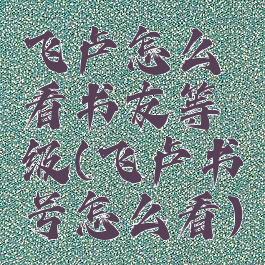 飞卢怎么
看书友等
级(飞卢书
号怎么看)